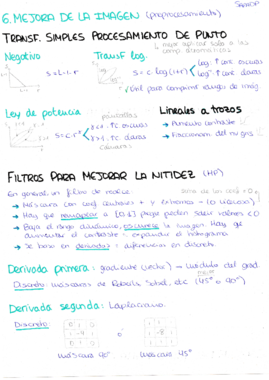 6. MEJORA DE LA IMAGEN (preprocesamiento)
TRANSF. SIMPLES PROCESAMIENTO DE PUNTO
Negativo
S = L-1-r
Transf log.
S = c·log(1+r)
log: ↑ cont oscuras
log⁻¹: ↑ cont claras
Útil para comprimir rango de imág.
Ley de potencia
S = c·r^γ
γ<1: ↑C oscuras
γ>1: ↑C claras
Lineales a trozos
→ Aumento contraste
→ Fraccionam. del niv gris
FILTROS PARA MEJORAR LA NITIDEZ (HP)
En general, un filtro de realce:
suma de los coef = 0
→ Máscara con coef centrales + y extremos - (o viceversa)
→ Hay que reescalar a [0,1] porque pueden salir valores <0
→ Baja el rango dinámico, oscurece la imagen. Hay que aumentar el contraste = expandir el histograma
→ Se basa en derivadas: diferencias en discreto.
Derivada primera: gradiente (vector) → módulo del grad.
Discreto: máscaras de Roberts, Sobel, etc (45° o 90°)
Derivada segunda: Laplaciano.
Discreto:
0 1 0
1 -4 1
0 1 0
o
1 1 1
1 -8 1
1 1 1
máscara 90°
máscara 45°